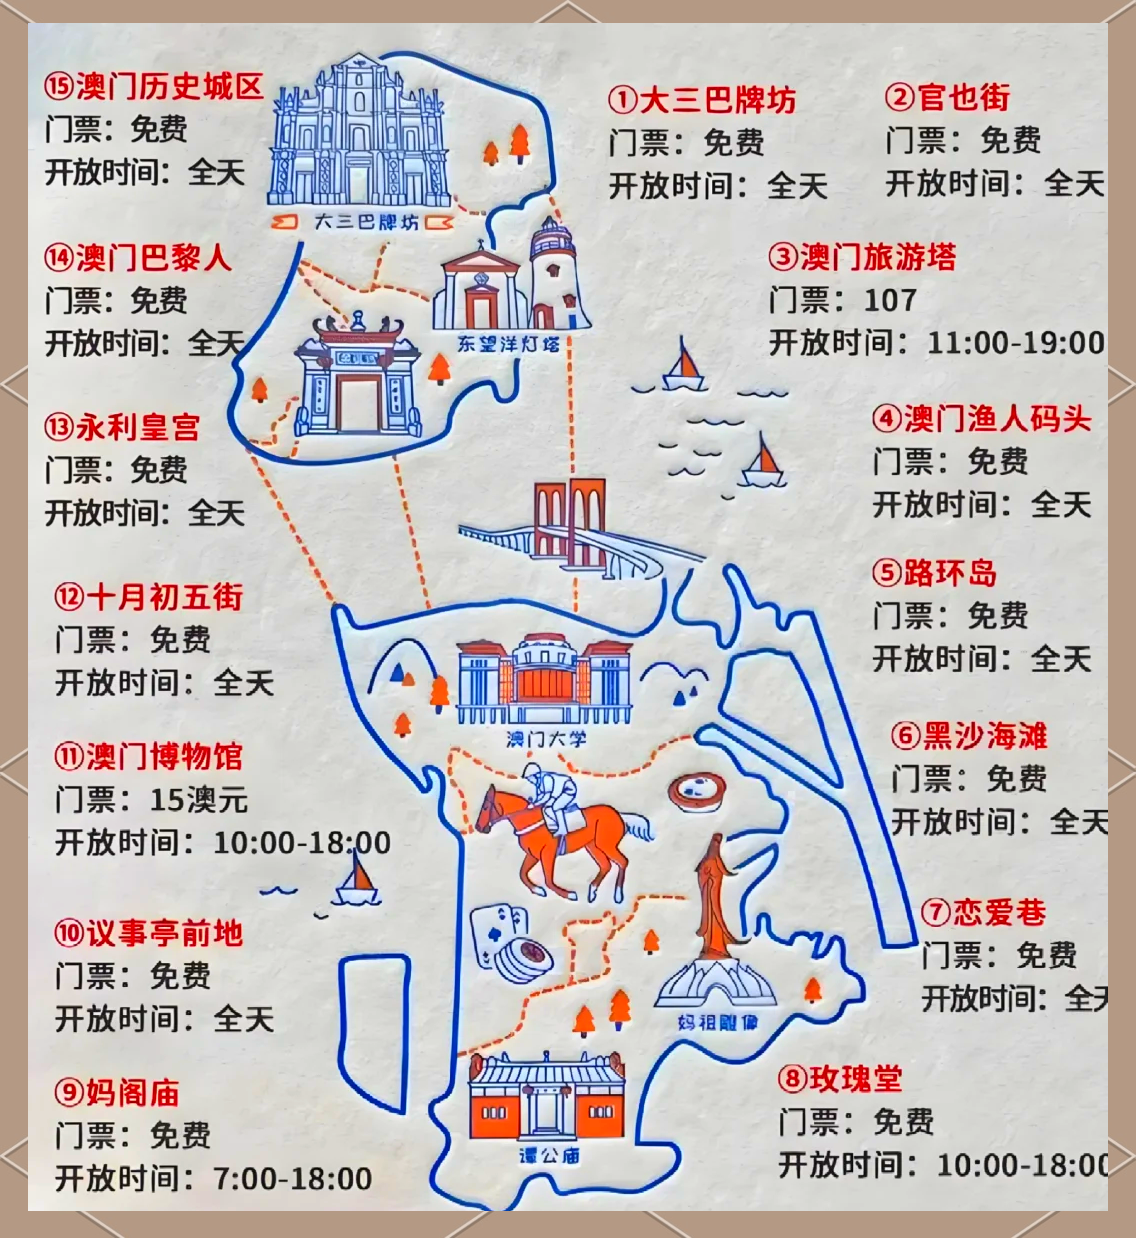 ⑮澳门历史城区
门票：免费
开放时间：全天
①大三巴牌坊
门票：免费
开放时间：全天
②官也街
门票：免费
开放时间：全天
大三巴牌坊
⑭澳门巴黎人
门票：免费
开放时间：全天
③澳门旅游塔
门票：107
开放时间：11:00-19:00
东望洋灯塔
⑬永利皇宫
门票：免费
开放时间：全天
④澳门渔人码头
门票：免费
开放时间：全天
⑤路环岛
门票：免费
开放时间：全天
⑫十月初五街
门票：免费
开放时间：全天
澳门大学
⑥黑沙海滩
门票：免费
开放时间：全天
⑪澳门博物馆
门票：15澳元
开放时间：10:00-18:00
⑦恋爱巷
门票：免费
开放时间：全天
⑩议事亭前地
门票：免费
开放时间：全天
妈祖雕像
⑧玫瑰堂
门票：免费
开放时间：10:00-18:00
⑨妈阁庙
门票：免费
开放时间：7:00-18:00
谭公庙